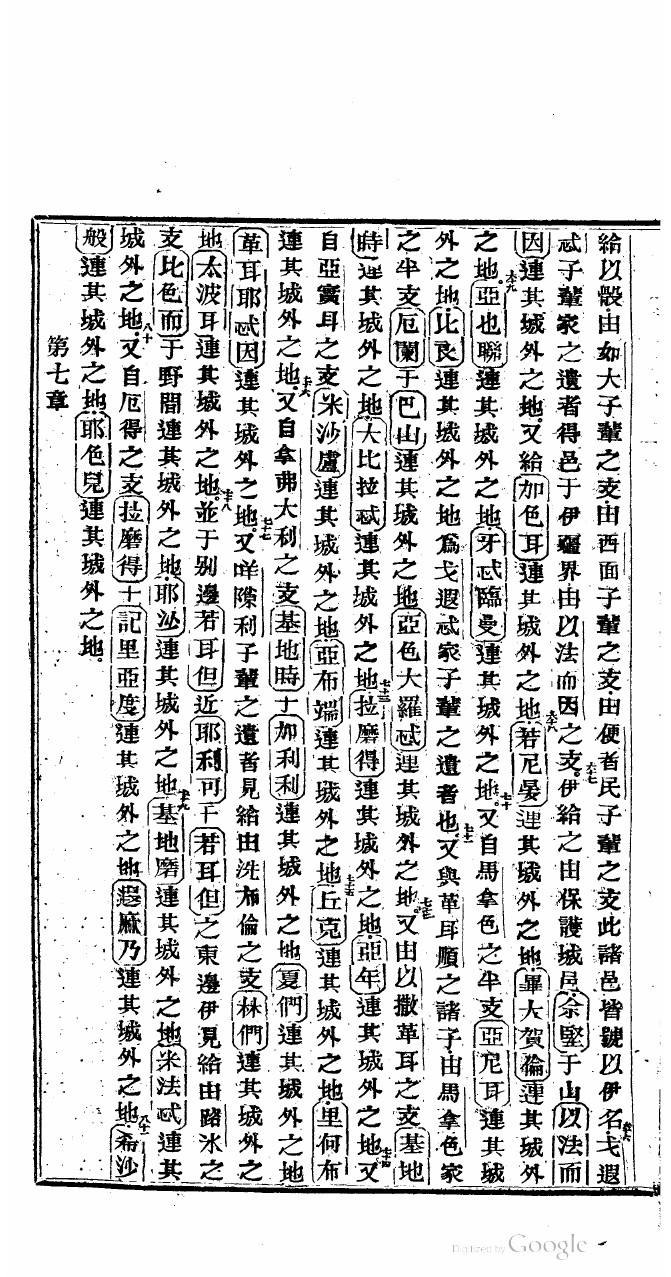 給以骰由如大子輩之支由西面子輩之支由便者民子輩之支此諸邑皆號以伊名戈遐
忒子輩家之遺者得邑于伊疆界由以法而因之支六七伊給之由保護城邑示堅于山以法而
因連其城外之地又給加色耳連其城外之地六八若尼晏連其城外之地畢大賀倫連其城外
之地六九亞也聯連其城外之地牙忒臨曼連其城外之地七十又自馬拿色之半支亞尼耳連其城
外之地比良連其城外之地爲戈遐忒家子輩之遺者也又與革耳順之諸子由馬拿色家
之半支厄蘭于巴山連其城外之地亞色大羅忒連其城外之地又由以撒革耳之支基地
時連其城外之地大比拉忒連其城外之地七十三拉磨得連其城外之地亞年連其城外之地七十四又
自亞實耳之支米沙盧連其城外之地亞布端連其城外之地七十五丘克連其城外之地里何布
連其城外之地七十六又自拿弗大利之支基地時于加利利連其城外之地夏們連其城外之地
革耳耶忒因連其城外之地七十七又咩隙利子輩之遺者見給由洗布倫之支林們連其城外之
地太波耳連其城外之地七十八並于別邊若耳但近耶利可于若耳但之東邊伊見給由路氷之
支比色而于野間連其城外之地耶沙連其城外之地七十九基地磨連其城外之地米法忒連其
城外之地八十又自厄得之支拉磨得于記里亞度連其城外之地遐麻乃連其城外之地八十一希沙
般連其城外之地耶色兒連其城外之地
第七章
Digitized by Google